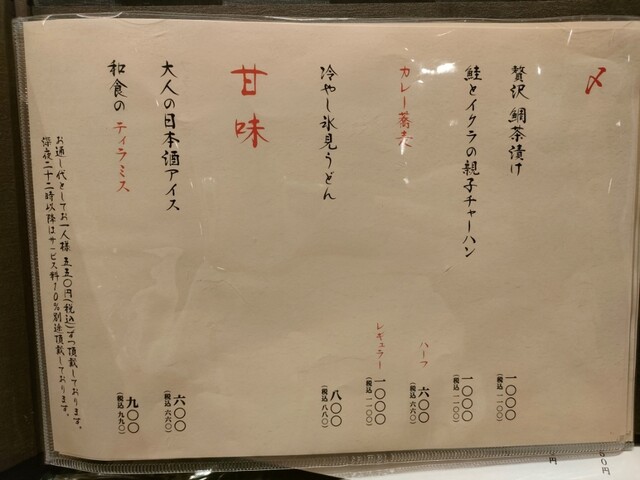 〆
贅沢 鯛茶漬け 一〇〇〇(税込 一一〇〇)
鮭とイクラの親子チャーハン 一〇〇〇(税込 一一〇〇)
カレー蕎麦 ハーフ 六〇〇(税込 六六〇)
レギュラー 一〇〇〇(税込 一一〇〇)
冷やし氷見うどん 八〇〇(税込 八八〇)
甘味
大人の日本酒アイス 六〇〇(税込 六六〇)
和食の ティラミス 九〇〇(税込 九九〇)
お通し代としてお一人様 五五〇円(税込)ずつ頂戴しております。
深夜二十二時以降はサービス料10%別途頂戴しております。